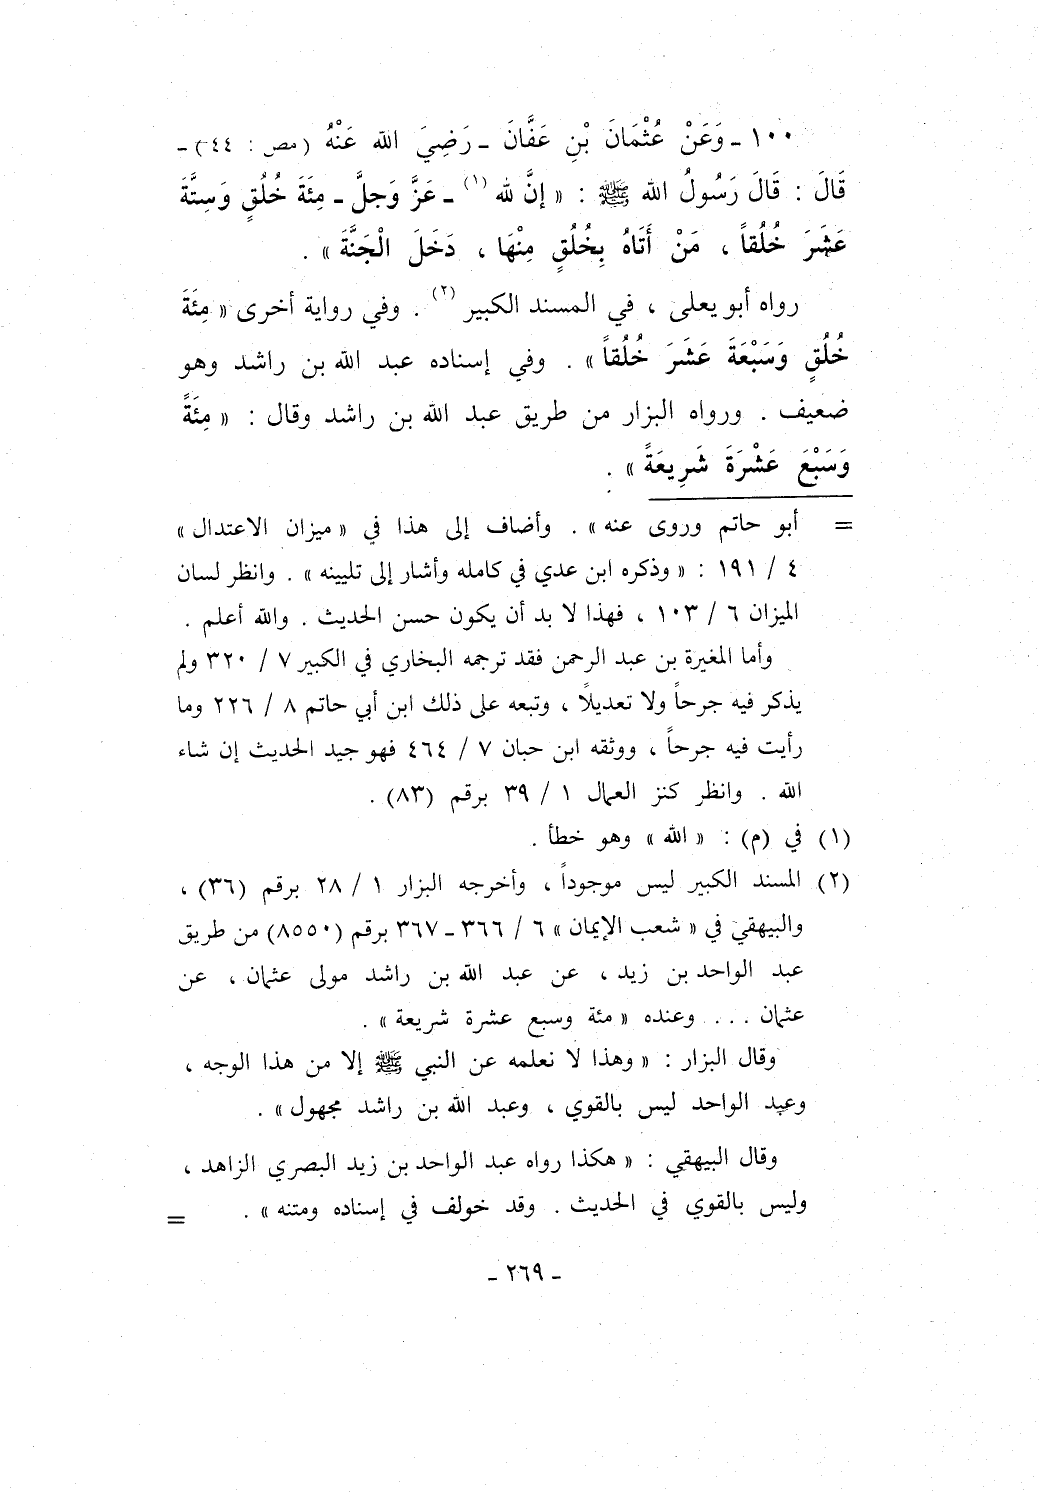 ١٠٠ ـ وَعَنْ عُثْمَانَ بْنِ عَفَّانَ ـ رَضِيَ الله عَنْهُ (مص : ٤٤) ـ
قَالَ : قَالَ رَسُولُ الله ﷺ : « إنَّ لله (١) ـ عَزَّ وَجلَّ ـ مِئَةَ خُلُقٍ وَسِتَّةَ
عَشَرَ خُلُقاً ، مَنْ أَتَاهُ بِخُلُقٍ مِنْهَا ، دَخَلَ الْجَنَّةَ » .
رواه أبو يعلى ، في المسند الكبير (٢) . وفي رواية أخرى « مِئَةَ
خُلُقٍ وَسَبْعَةَ عَشَرَ خُلُقاً » . وفي إسناده عبد الله بن راشد وهو
ضعيف . ورواه البزار من طريق عبد الله بن راشد وقال : « مِئَةً
وَسَبْعَ عَشْرَةَ شَرِيعَةً » .
= أبو حاتم وروى عنه » . وأضاف إلى هذا في « ميزان الاعتدال »
٤ / ١٩١ : « وذكره ابن عدي في كامله وأشار إلى تليينه » . وانظر لسان
الميزان ٦ / ١٠٣ ، فهذا لا بد أن يكون حسن الحديث . والله أعلم .
وأما المغيرة بن عبد الرحمن فقد ترجمه البخاري في الكبير ٧ / ٣٢٠ ولم
يذكر فيه جرحاً ولا تعديلًا ، وتبعه على ذلك ابن أبي حاتم ٨ / ٢٢٦ وما
رأيت فيه جرحاً ، ووثقه ابن حبان ٧ / ٤٦٤ فهو جيد الحديث إن شاء
الله . وانظر كنز العمال ١ / ٣٩ برقم (٨٣) .
(١) في (م) : « الله » وهو خطأ .
(٢) المسند الكبير ليس موجوداً ، وأخرجه البزار ١ / ٢٨ برقم (٣٦) ،
والبيهقي في « شعب الإيمان » ٦ / ٣٦٦ ـ ٣٦٧ برقم (٨٥٥٠) من طريق
عبد الواحد بن زيد ، عن عبد الله بن راشد مولى عثمان ، عن
عثمان . . . وعنده « مئة وسبع عشرة شريعة » .
وقال البزار : « وهذا لا نعلمه عن النبي ﷺ إلا من هذا الوجه ،
وعبد الواحد ليس بالقوي ، وعبد الله بن راشد مجهول » .
وقال البيهقي : « هكذا رواه عبد الواحد بن زيد البصري الزاهد ،
وليس بالقوي في الحديث . وقد خولف في إسناده ومتنه » . =
ـ ٢٦٩ ـ